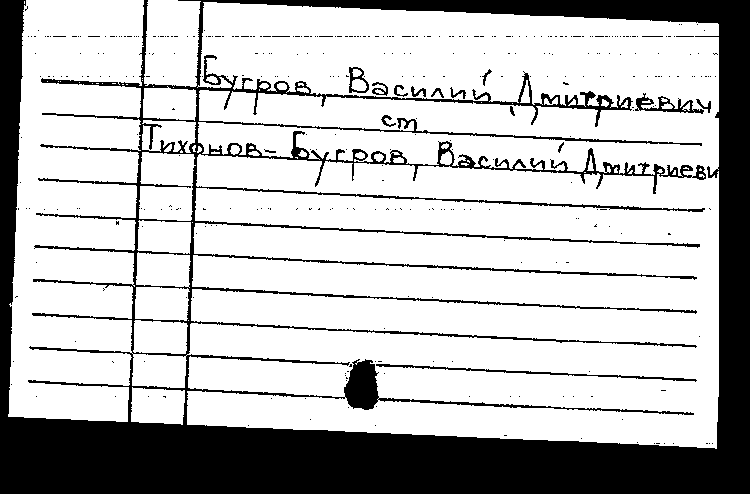 Бугров, Василий Дмитриевич.
ст.
Тихонов-Бугров, Василий Дмитриеви